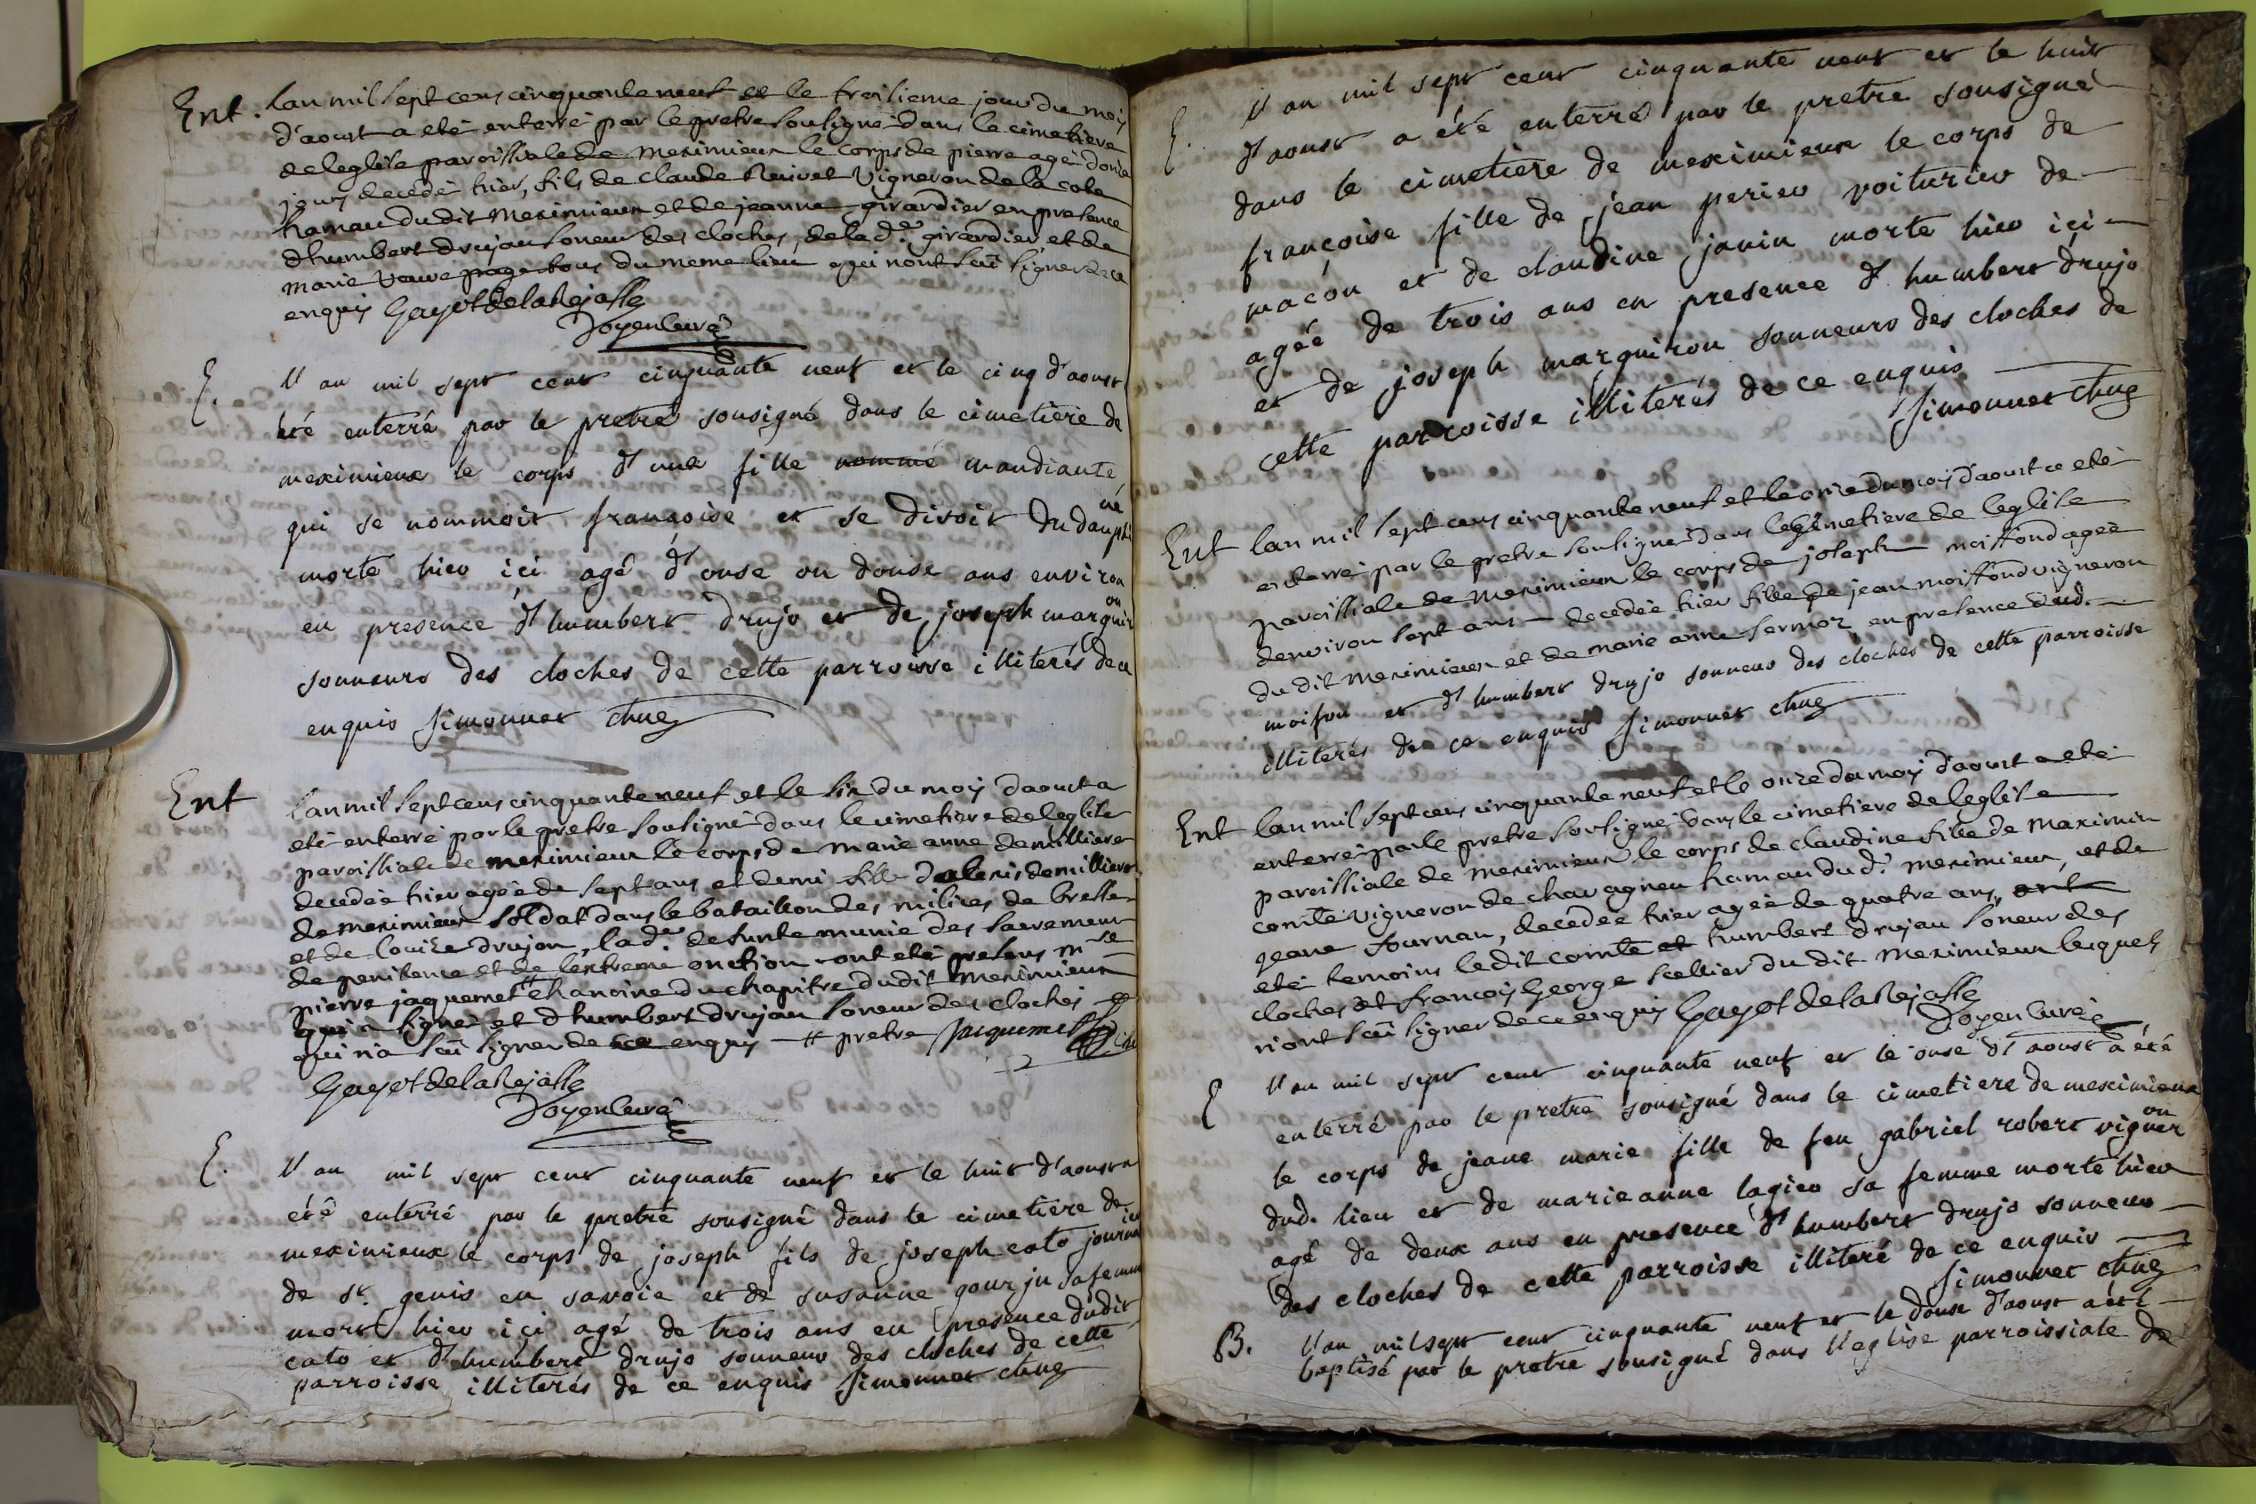 Ent. lan mil sept cens cinquante neuf et le troisieme jour du moy
d'aoust a eté enterré par le pretre sousigné dans le cimetiere
de leglise paroissiale de meximieux le corps de pierre agé donze
jours decedé hier, fils de claude vigneron de la cote
hamau du dit meximieux et de jeanne girardier en presence
dhumbert drujau soneur des cloches, de la d.e girardier, et de
marie veuve page tous du meme lieu qui nont sçu signer de ce
enquis Gayot de la Rejasse
Doyen Curé
E. l'an mil sept cent cinquante neuf et le cinq d'aoust
été enterré par le pretre sousigné dans le cimetiere de
meximieux le corps d'une fille nommé mandiante
qui se nommoit françoise et se disoit du dauphiné
morte hier ici agé d'onse ou douse ans environ
en presence d'humbert drujo et de joseph marquiron
sonneurs des cloches de cette parroisse illiterés de ce
enquis Simonnet chne
Ent lan mil sept cens cinquante neuf et le six du moy daoust a
eté enterré par le pretre sousigné dans le cimetiere de leglise
paroissiale de meximieux le corps de marie anne demilliere
decedée hier agée de sept ans et demi fille dalexis demilliere
de meximieux soldat dans le bataillon des milices de bresse
et de louize drujon, lad.e defunte munie des sacremens
de penitence et de lextreme onction ont eté presens m.re
pierre jaquemet # chanoine du chapitre dudit meximieux
qui a signé et dhumbert drujau soneur des cloches
qui n'a sçu signer de ce enquis # pretre Jacquemet
Gayot de la Rejasse
Doyen Curé
E. l'an mil sept cent cinquante neuf et le huit d'aoust a
été enterré par le pretre sousigné dans le cimetiere de
meximieux le corps de joseph fils de joseph cato journalier
de st. genis en savoie et de susanne gourju sa femme
mort hier içi agé de trois ans en presence dudit
cato et d'humbert drujo sonneur des cloches de cette
parroisse illiterés de ce enquis Simonnet chne
E. l'an mil sept cent cinquante neuf et le huit
d'aoust a été enterré par le pretre sousigné
dans le cimetiere de meximieux le corps de
françoise fille de jean perier voiturier de
maçon et de claudine janin morte hier içi
agée de trois ans en presence d'humbert drujo
et de joseph marquiron sonneurs des cloches de
cette parroisse illiterés de ce enquis
Simonnet chne
Ent lan mil sept cens cinquante neuf et le onze du moy daoust a eté
enterré par le pretre sousigné dans le cimetiere de leglise
paroissiale de meximieux le corps de joseph moissond agée
denviron sept ans decedée hier fille de jean moissond vigneron
du dit meximieux et de marie anne sermoz en presence dud.
moison et d'humbert drujo sonneur des cloches de cette parroisse
illiterés de ce enquis Simonnet chne
Ent lan mil sept cens cinquante neuf et le onze du moy d'aoust a eté
enterré par le pretre sousigné dans le cimetiere de leglise
paroissiale de meximieux le corps de claudine fille de maximin
comte vigneron de chavagneu hamau dud. meximieux, et de
jeane fournau, decedée hier agée de quatre ans, ont
eté temoins ledit comte et humbert drujau soneur des
cloches et françoy George scellier du dit meximieux lesquels
n'ont sçu signer de ce enquis Gayot de la Rejasse
Doyen Curé
E l'an mil sept cent cinquante neuf et le onse d'aoust a été
enterré par le pretre sousigné dans le cimetiere de meximieux
le corps de jeane marie fille de feu gabriel robert vigneron
dud. lieu et de marie anne lagier sa femme morte hier
agé de deux ans en presence d'humbert drujo sonneur
des cloches de cette parroisse illiteré de ce enquis
Simonnet chne
B. l'an mil sept cent cinquante neuf et le douse d'aoust a été
baptisé par le pretre sousigné dans l'eglise parroissiale de